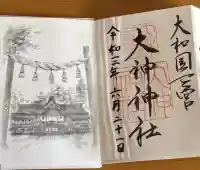 大和国一宮
大神神社
令和二年六月二十一日